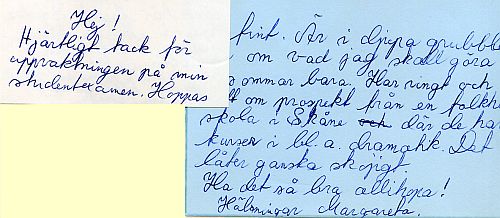 Hej!
Hjärtligt tack för
uppvaktningen på min
studentexamen. Hoppas
fint. Är i djupa grubbl
om vad jag skall göra
sommar bara. Har ringt och
om prospekt från en folkh
skola i Skåne och där de ha
kurser i bl.a. dramatik. Det
låter ganska skojigt.
Ha det så bra allihopa!
Hälsningar Margareta.